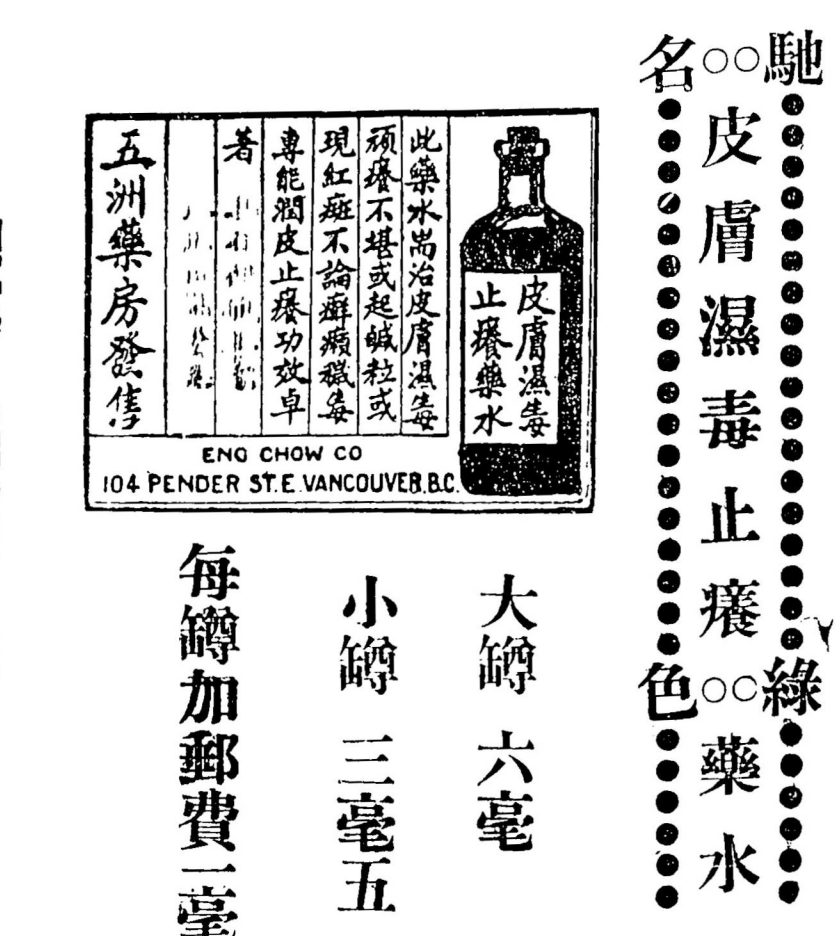 馳○○名
皮膚濕毒止癢
綠○○色
藥水
皮膚濕毒
止癢藥水
此藥水耑治皮膚濕毒
頑癢不堪或起瘌粒或
現紅斑不論癬癩穢毒
專能潤皮止癢功效卓
著
五洲藥房發售
ENG CHOW CO
104 PENDER ST. E. VANCOUVER, B.C.
大罇 六毫
小罇 三毫五
每罇加郵費一毫